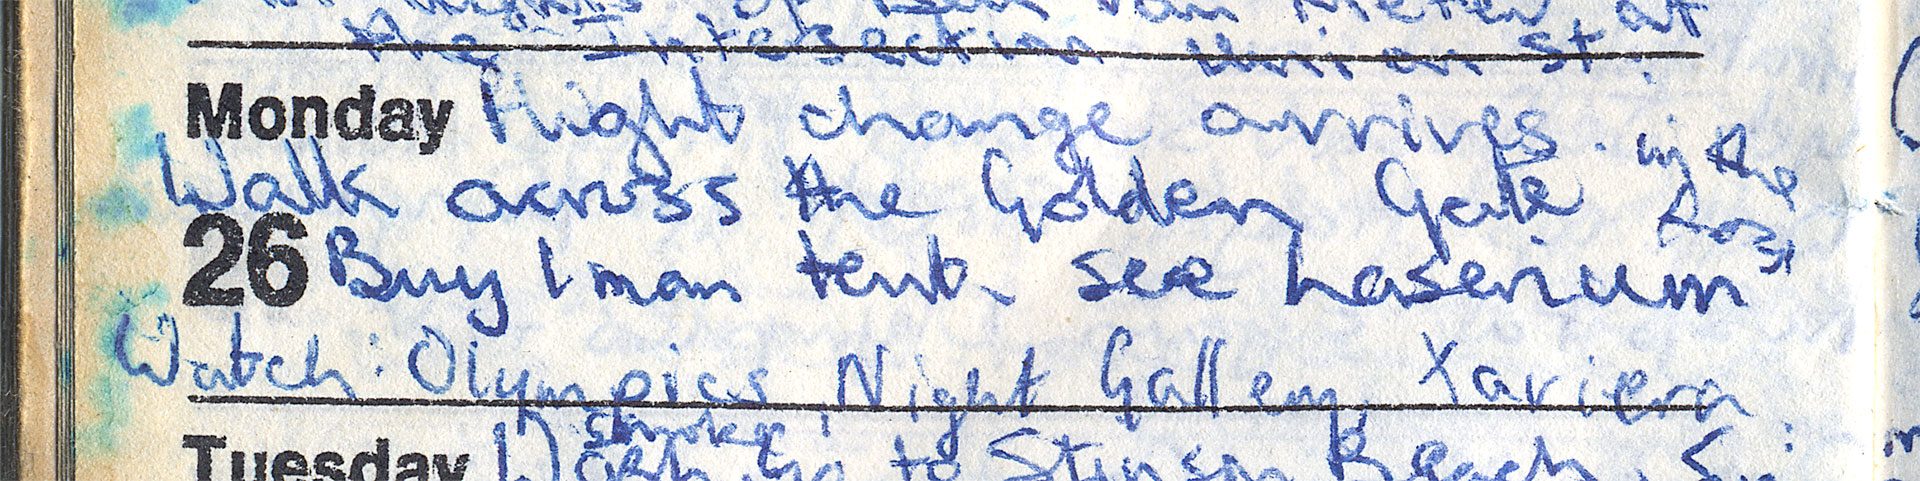 of Ben Van Meter at
the Intersection Union St.
Monday Flight change arrives. in the
Walk across the Golden Gate fog
26 Buy 1 man tent see Laserium
Watch: Olympics, Night Gallery, Xaviera
smoke
Tuesday to Stinson Beach.